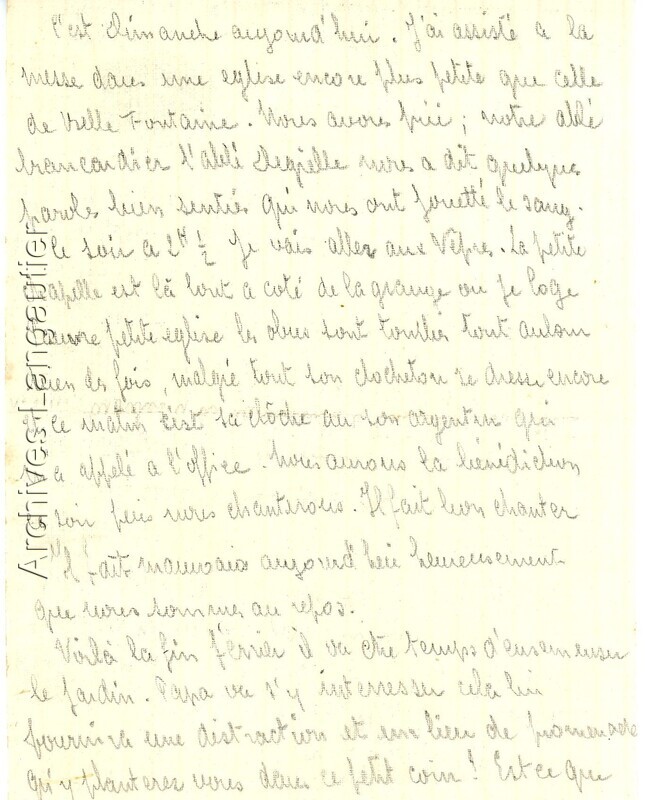 C'est Dimanche aujourd'hui. J'ai assisté a la
messe dans une eglise encore plus petite que celle
de Vielle Fontaine. Nous avons prié ; notre abbé
brancardier l'abbé nous a dit quelques
paroles bien senties qui nous ont fouetté le sang.
Ce soir a 2H 1/2 je vais aller aux Vêpres. La petite
chapelle est là tout a coté de la grange ou je loge
Pauvre petite eglise les obus sont tombés tout autour
bien des fois, malgré tout son clocheton se dresse encore
et ce matin c'est sa clôche au son argentin qui
a appelé a l'office. Nous aurons la bénédiction
ce soir puis nous chanterons. Il fait bon chanter
Il fait mauvais aujourd'hui heureusement
que nous sommes au repos.
Voilà la fin février il va être temps d'ensemenser
le jardin. Papa va s'y interresser cela lui
fournira une distraction et un lieu de promenade
qu'y planterez vous dans ce petit coin ! Est ce que
Archives Lengaufier